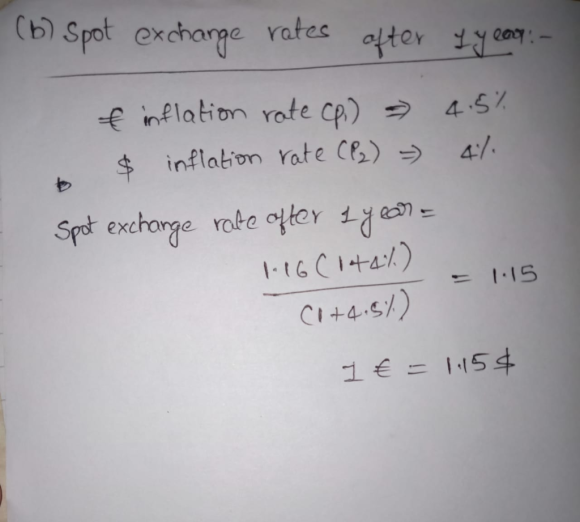 (b) Spot exchange rates after 1 year:-
€ inflation rate (p1) ⇒ 4.5%
$ inflation rate (P2) ⇒ 4%.
Spot exchange rate after 1 year =
1.16 (1+4%)
(1+4.5%)
= 1.15
1 € = 1.15 $